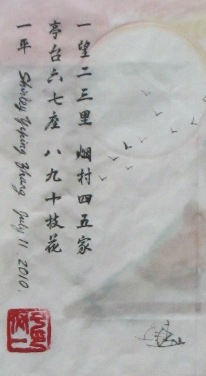 一望二三里 烟村四五家
亭台六七座 八九十枝花
一平 Shirley Yiping Zhang July 11. 2010.